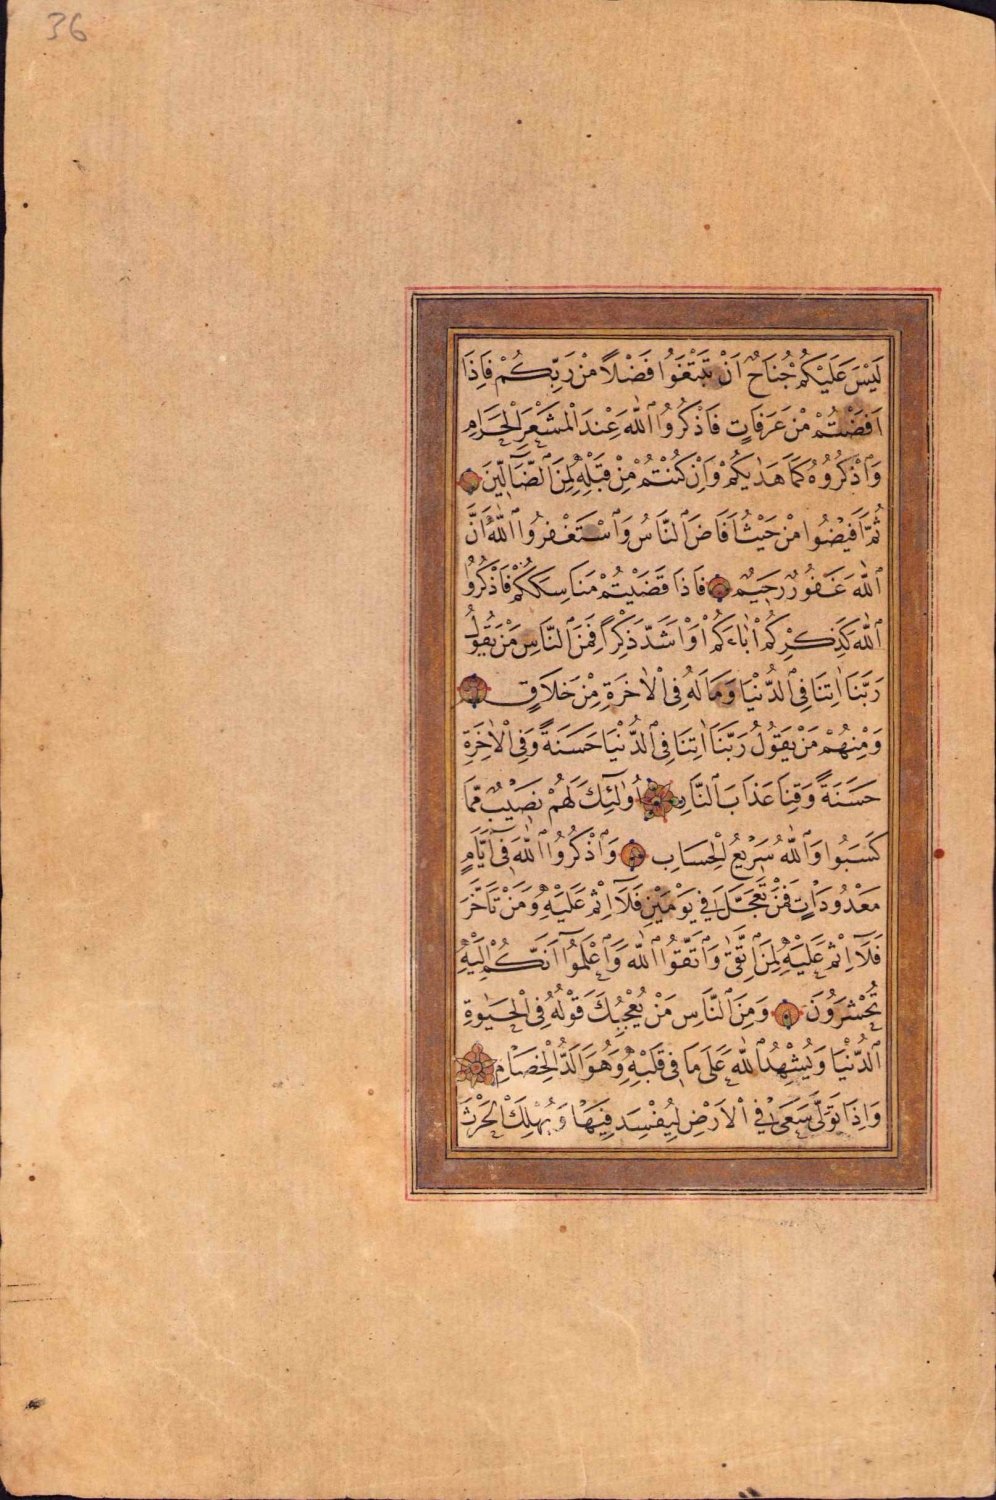 36
لَيْسَ عَلَيْكُمْ جُنَاحٌ اَنْ تَبْتَغُوا فَضْلاً مِنْ رَبِّكُمْ فَاِذَا
اَفَضْتُمْ مِنْ عَرَفَاتٍ فَاذْكُرُوا اللّٰهَ عِنْدَ الْمَشْعَرِ الْحَرَامِ
وَاذْكُرُوهُ كَمَا هَدٰيكُمْ وَاِنْ كُنْتُمْ مِنْ قَبْلِهِ لَمِنَ الضَّآلِّينَ
ثُمَّ اَفِيضُوا مِنْ حَيْثُ اَفَاضَ النَّاسُ وَاسْتَغْفِرُوا اللّٰهَ اِنَّ
اللّٰهَ غَفُورٌ رَحِيمٌ فَاِذَا قَضَيْتُمْ مَنَاسِكَكُمْ فَاذْكُرُوا
اللّٰهَ كَذِكْرِكُمْ اٰبَاءَكُمْ اَوْ اَشَدَّ ذِكْرًا فَمِنَ النَّاسِ مَنْ يَقُولُ
رَبَّنَا اٰتِنَا فِي الدُّنْيَا وَمَا لَهُ فِي الْاٰخِرَةِ مِنْ خَلَاقٍ
وَمِنْهُمْ مَنْ يَقُولُ رَبَّنَا اٰتِنَا فِي الدُّنْيَا حَسَنَةً وَفِي الْاٰخِرَةِ
حَسَنَةً وَقِنَا عَذَابَ النَّارِ اُولٰئِكَ لَهُمْ نَصِيبٌ مِمَّا
كَسَبُوا وَاللّٰهُ سَرِيعُ الْحِسَابِ وَاذْكُرُوا اللّٰهَ فِي اَيَّامٍ
مَعْدُودَاتٍ فَمَنْ تَعَجَّلَ فِي يَوْمَيْنِ فَلَا اِثْمَ عَلَيْهِ وَمَنْ تَاَخَّرَ
فَلَا اِثْمَ عَلَيْهِ لِمَنِ اتَّقٰى وَاتَّقُوا اللّٰهَ وَاعْلَمُوا اَنَّكُمْ اِلَيْهِ
تُحْشَرُونَ وَمِنَ النَّاسِ مَنْ يُعْجِبُكَ قَوْلُهُ فِي الْحَيٰوةِ
الدُّنْيَا وَيُشْهِدُ اللّٰهَ عَلٰى مَا فِي قَلْبِهِ وَهُوَ اَلَدُّ الْخِصَامِ
وَاِذَا تَوَلّٰى سَعٰى فِي الْاَرْضِ لِيُفْسِدَ فِيهَا وَيُهْلِكَ الْحَرْثَ